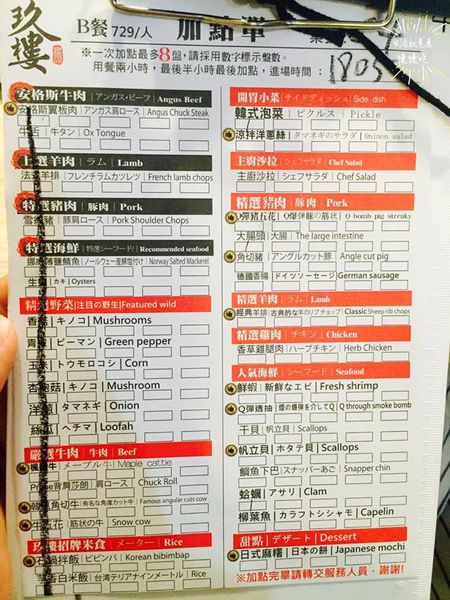 玖樓
B餐 729/人 加點單
※一次加點最多8盤,請採用數字標示盤數。
用餐兩小時,最後半小時最後加點,進場時間:1805
安格斯牛肉 |アンガス・ビーフ| Angus Beef
安格斯翼板肉 |アンガス肩ロース| Angus Chuck Steak
牛舌 | 牛タン | Ox Tongue
上選羊肉 | ラム | Lamb
法式羊排 |フレンチラムカツレツ| French lamb chops
特選豬肉 | 豚肉 | Pork
豚肩ロース | Pork Shoulder Chops
特選海鮮 |特選シーフード| Recommended seafood
挪威薄鹽鯖魚 |ノールウェー産鯖塩付け| Norway Salted Mackerel
カキ | Oysters
精選野菜 |注目の野生|Featured wild
香菇|キノコ|Mushrooms
青椒|ピーマン|Green pepper
玉米|トウモロコシ|Corn
杏鮑菇|キノコ|Mushroom
洋蔥|タマネギ|Onion
絲瓜|ヘチマ|Loofah
嚴選牛肉 | 牛肉 | Beef
メープル牛| Maple cattle
Prime背肩莎朗| 肩ロース | Chuck Roll
角切牛 |有名な角度カット牛| Famous angular cuts cow
牛五花 | 筋状の牛 | Snow cow
玖樓招牌米食 | メーター | Rice
石鍋拌飯 | ビビンバ | Korean bibimbap
芋香白米飯 | 台湾テリアナインメートル | Rice
開胃小菜 |サイドディッシュ| Side dish
韓式泡菜 | ピクルス | Pickle
涼拌洋蔥絲 | タマネギのサラダ | Oninon salad
主廚沙拉 |シェフサラダ| Chef Salad
主廚沙拉 | シェフサラダ | Chef Salad
精選豬肉 | 豚肉 | Pork
Q彈豬五花 |Q爆弾豚の筋状| Q bomb pig streaky
大腸頭 | 大腸 | The large intestine
角切豬 | アングルカット豚 | Angle cut pig
德國香腸 | ドイツソーセージ |German sausage
精選羊肉 | ラム | Lamb
經典羊排 |古典的な羊のリブチョップ| Classic Sheep rib chops
精選雞肉 | チキン | Chicken
香草雞腿肉 | ハーブチキン | Herb Chicken
人氣海鮮 | シーフード | Seafood
鮮蝦 | 新鮮なエビ | Fresh shrimp
Q彈透抽 |煙の爆弾を介してQ| Q through smoke bomb
干貝 | 帆立貝 | Scallops
帆立貝 | ホタテ貝 | Scallops
鯛魚下巴 | スナッパーあご | Snapper chin
蛤蠣 | アサリ | Clam
柳葉魚 | カラフトシシャモ | Capelin
甜點 | デザート | Dessert
日式麻糬 | 日本の餅 | Japanese mochi
※加點完畢請轉交服務人員,謝謝!